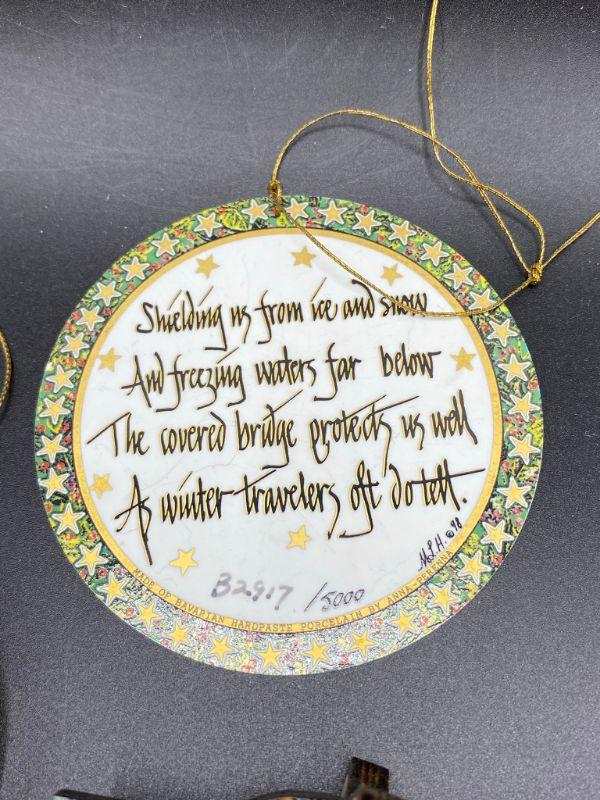 Shielding us from ice and snow
And freezing waters far below
The covered bridge protects us well
As winter travelers oft do tell.
M.L.H. © 98
B2917 /5000
MADE OF BAVARIAN HARDPASTE PORCELAIN BY ANNA-PERENNA